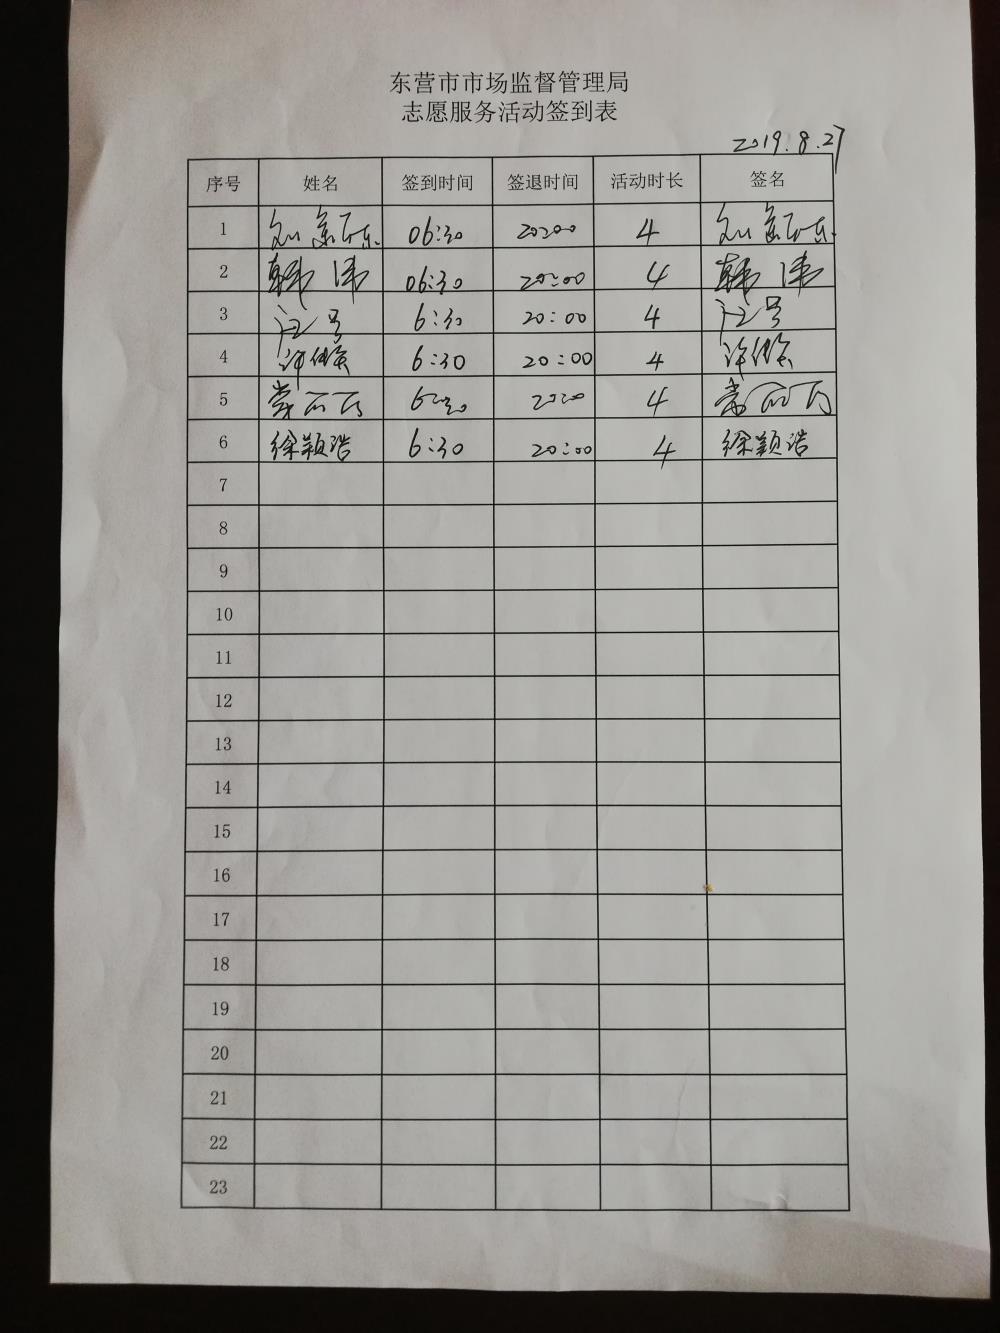 东营市市场监督管理局
志愿服务活动签到表
2019.8.27
序号 姓名 签到时间 签退时间 活动时长 签名
1 06:30 4
2 韩伟 06:30 20:00 4 韩伟
3 6:30 20:00 4
4 6:30 20:00 4
5 常丽丽 4 常丽丽
6 徐颖浩 6:30 20:00 4 徐颖浩
7
8
9
10
11
12
13
14
15
16
17
18
19
20
21
22
23